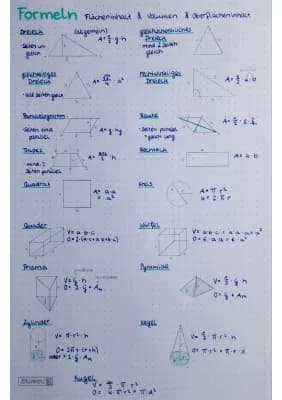 Formeln Flächeninhalt & Volumen & Oberflächeninhalt
Dreieck (allgemein)
- Seiten un-
gleich
gleichschenkliges
Dreieck
- mind. 2 Seiten
gleich
gleichseitiges
Dreieck
- alle Seiten gleich
rechtwinkliges
Dreieck
Parallelogramm
- Seiten sind
parallel
A = g · hg
Raute
- Seiten parallel
+ gleich lang
Trapez
- mind. 2
Seiten parallel
Rechteck
A = a · b
Quadrat
A = a · a
= a²
Kreis
A = π · r²
u = 2 · π · r
Quader
V = a · b · c
Würfel
V = a · a · a = a³
O = 6 · a · a = 6 · a²
Prisma
V = G · h
O = 2 · G + AM
Pyramide
O = G + AM
Zylinder
V = π · r² · h
O = 2π · r · (r + h)
Kegel
O = π · r² + π · r · s
Kugel
O = 4 · π · r² = π · d²